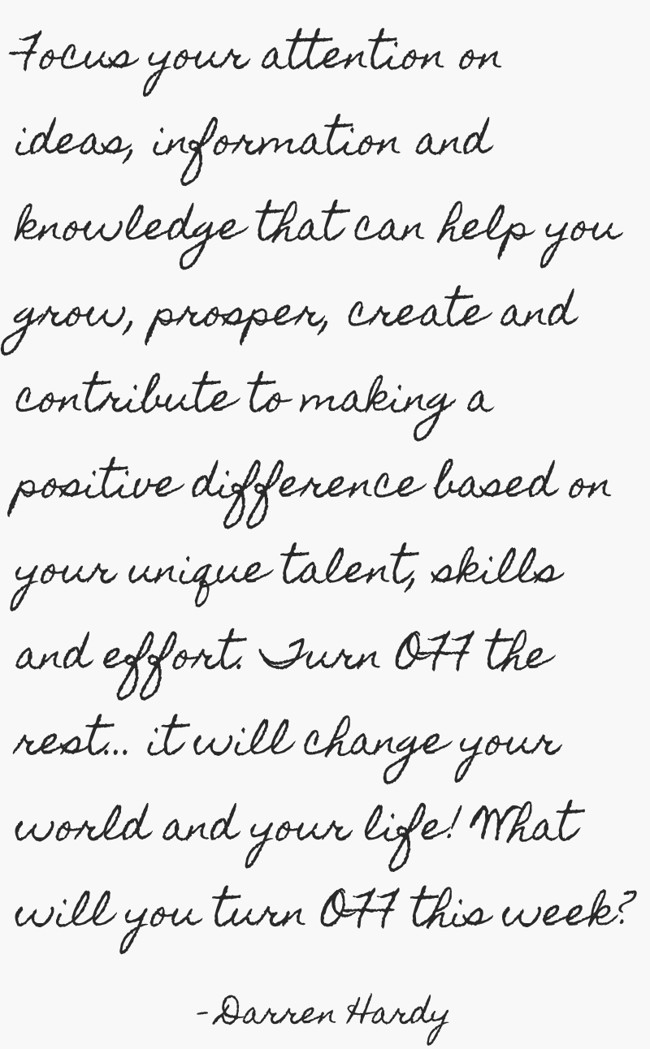 Focus your attention on
ideas, information and
knowledge that can help you
grow, prosper, create and
contribute to making a
positive difference based on
your unique talent, skills
and effort. Turn OFF the
rest... it will change your
world and your life! What
will you turn OFF this week?
-Darren Hardy